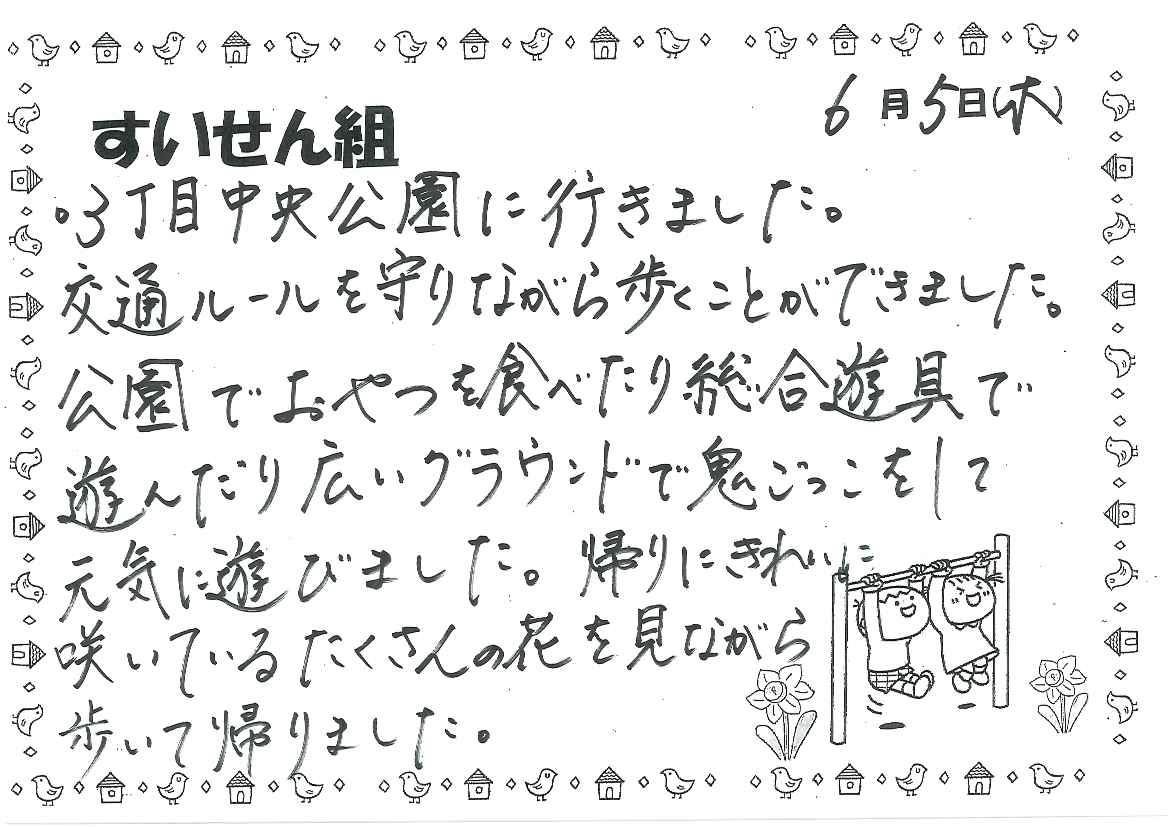 6月5日(木)
すいせん組
。3丁目中央公園に行きました。
交通ルールを守りながら歩くことができました。
公園でおやつを食べたり総合遊具で
遊んだり広いグラウンドで鬼ごっこをして
元気に遊びました。帰りにきれいに
咲いているたくさんの花を見ながら
歩いて帰りました。